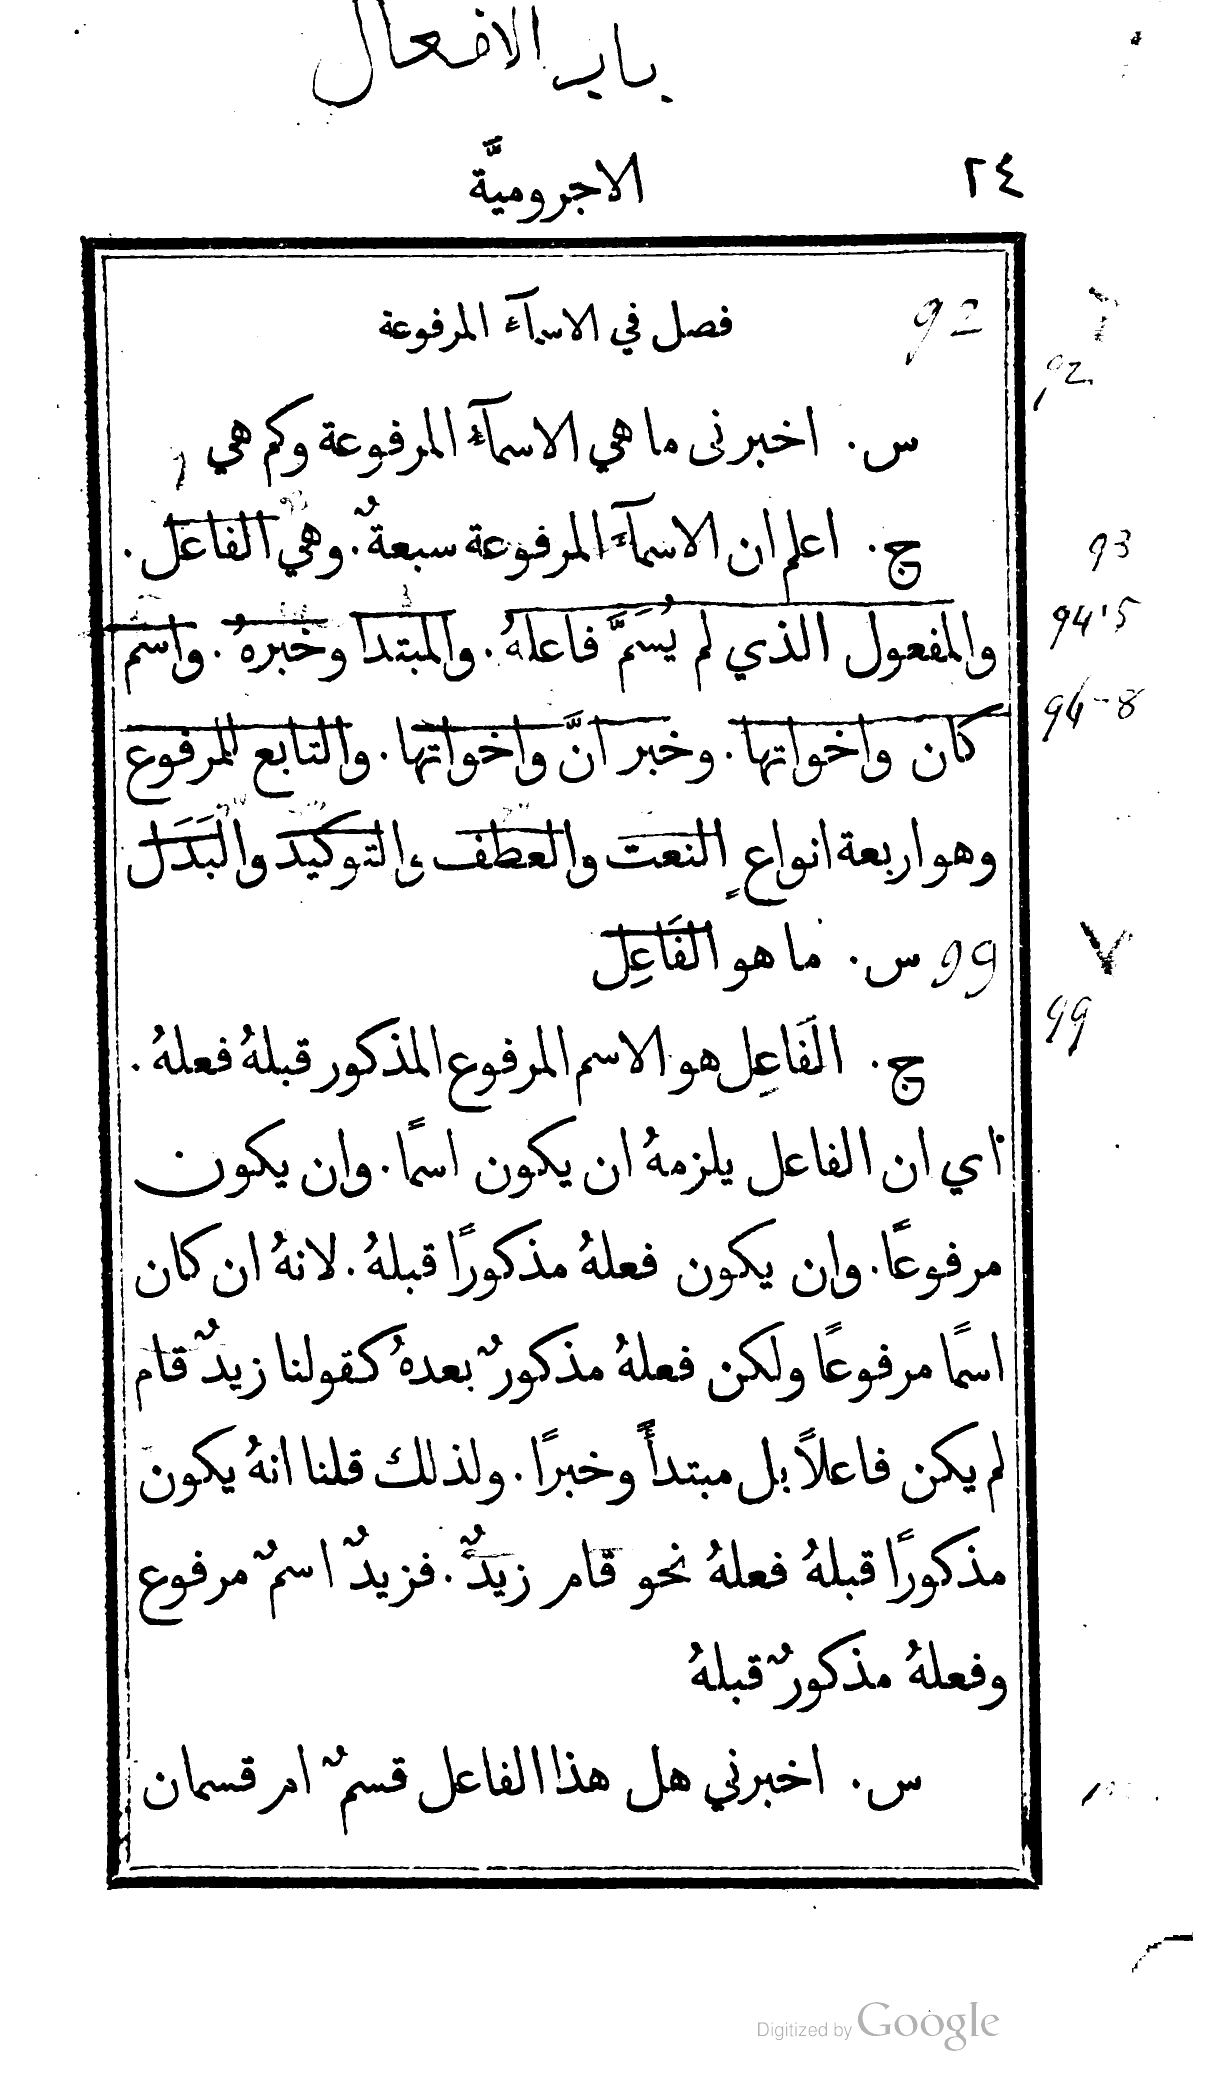 باب الافعال
٢٤
الاجروميَّة
فصل في الاسمآء المرفوعة
92
92
س. اخبرنى ما هي الاسمآء المرفوعة وكم هي
ج. اعلم ان الاسمآء المرفوعة سبعةٌ. وهي الفاعل.
93
والمفعول الذي لم يُسَمَّ فاعلهُ. والمبتدا وخبرهُ. واسم
94'5
كان واخواتها. وخبر انَّ واخواتها. والتابع المرفوع
94-8
وهو اربعة انواعٍ النعت والعطف والتوكيد والبَدَل
99 س. ما هو الفَاعِل
99
ج. الفَاعِل هو الاسم المرفوع المذكور قبلهُ فعلهُ.
اي ان الفاعل يلزمهُ ان يكون اسمًا. وان يكون
مرفوعًا. وان يكون فعلهُ مذكورًا قبلهُ. لانهُ ان كان
اسمًا مرفوعًا ولكن فعلهُ مذكورٌ بعدهُ كقولنا زيدٌ قام
لم يكن فاعلاً بل مبتدأً وخبرًا. ولذلك قلنا انهُ يكون
مذكورًا قبلهُ فعلهُ نحو قام زيدٌ. فزيدٌ اسمٌ مرفوع
وفعلهُ مذكورٌ قبلهُ
س. اخبرني هل هذا الفاعل قسمٌ ام قسمان
Digitized by Google